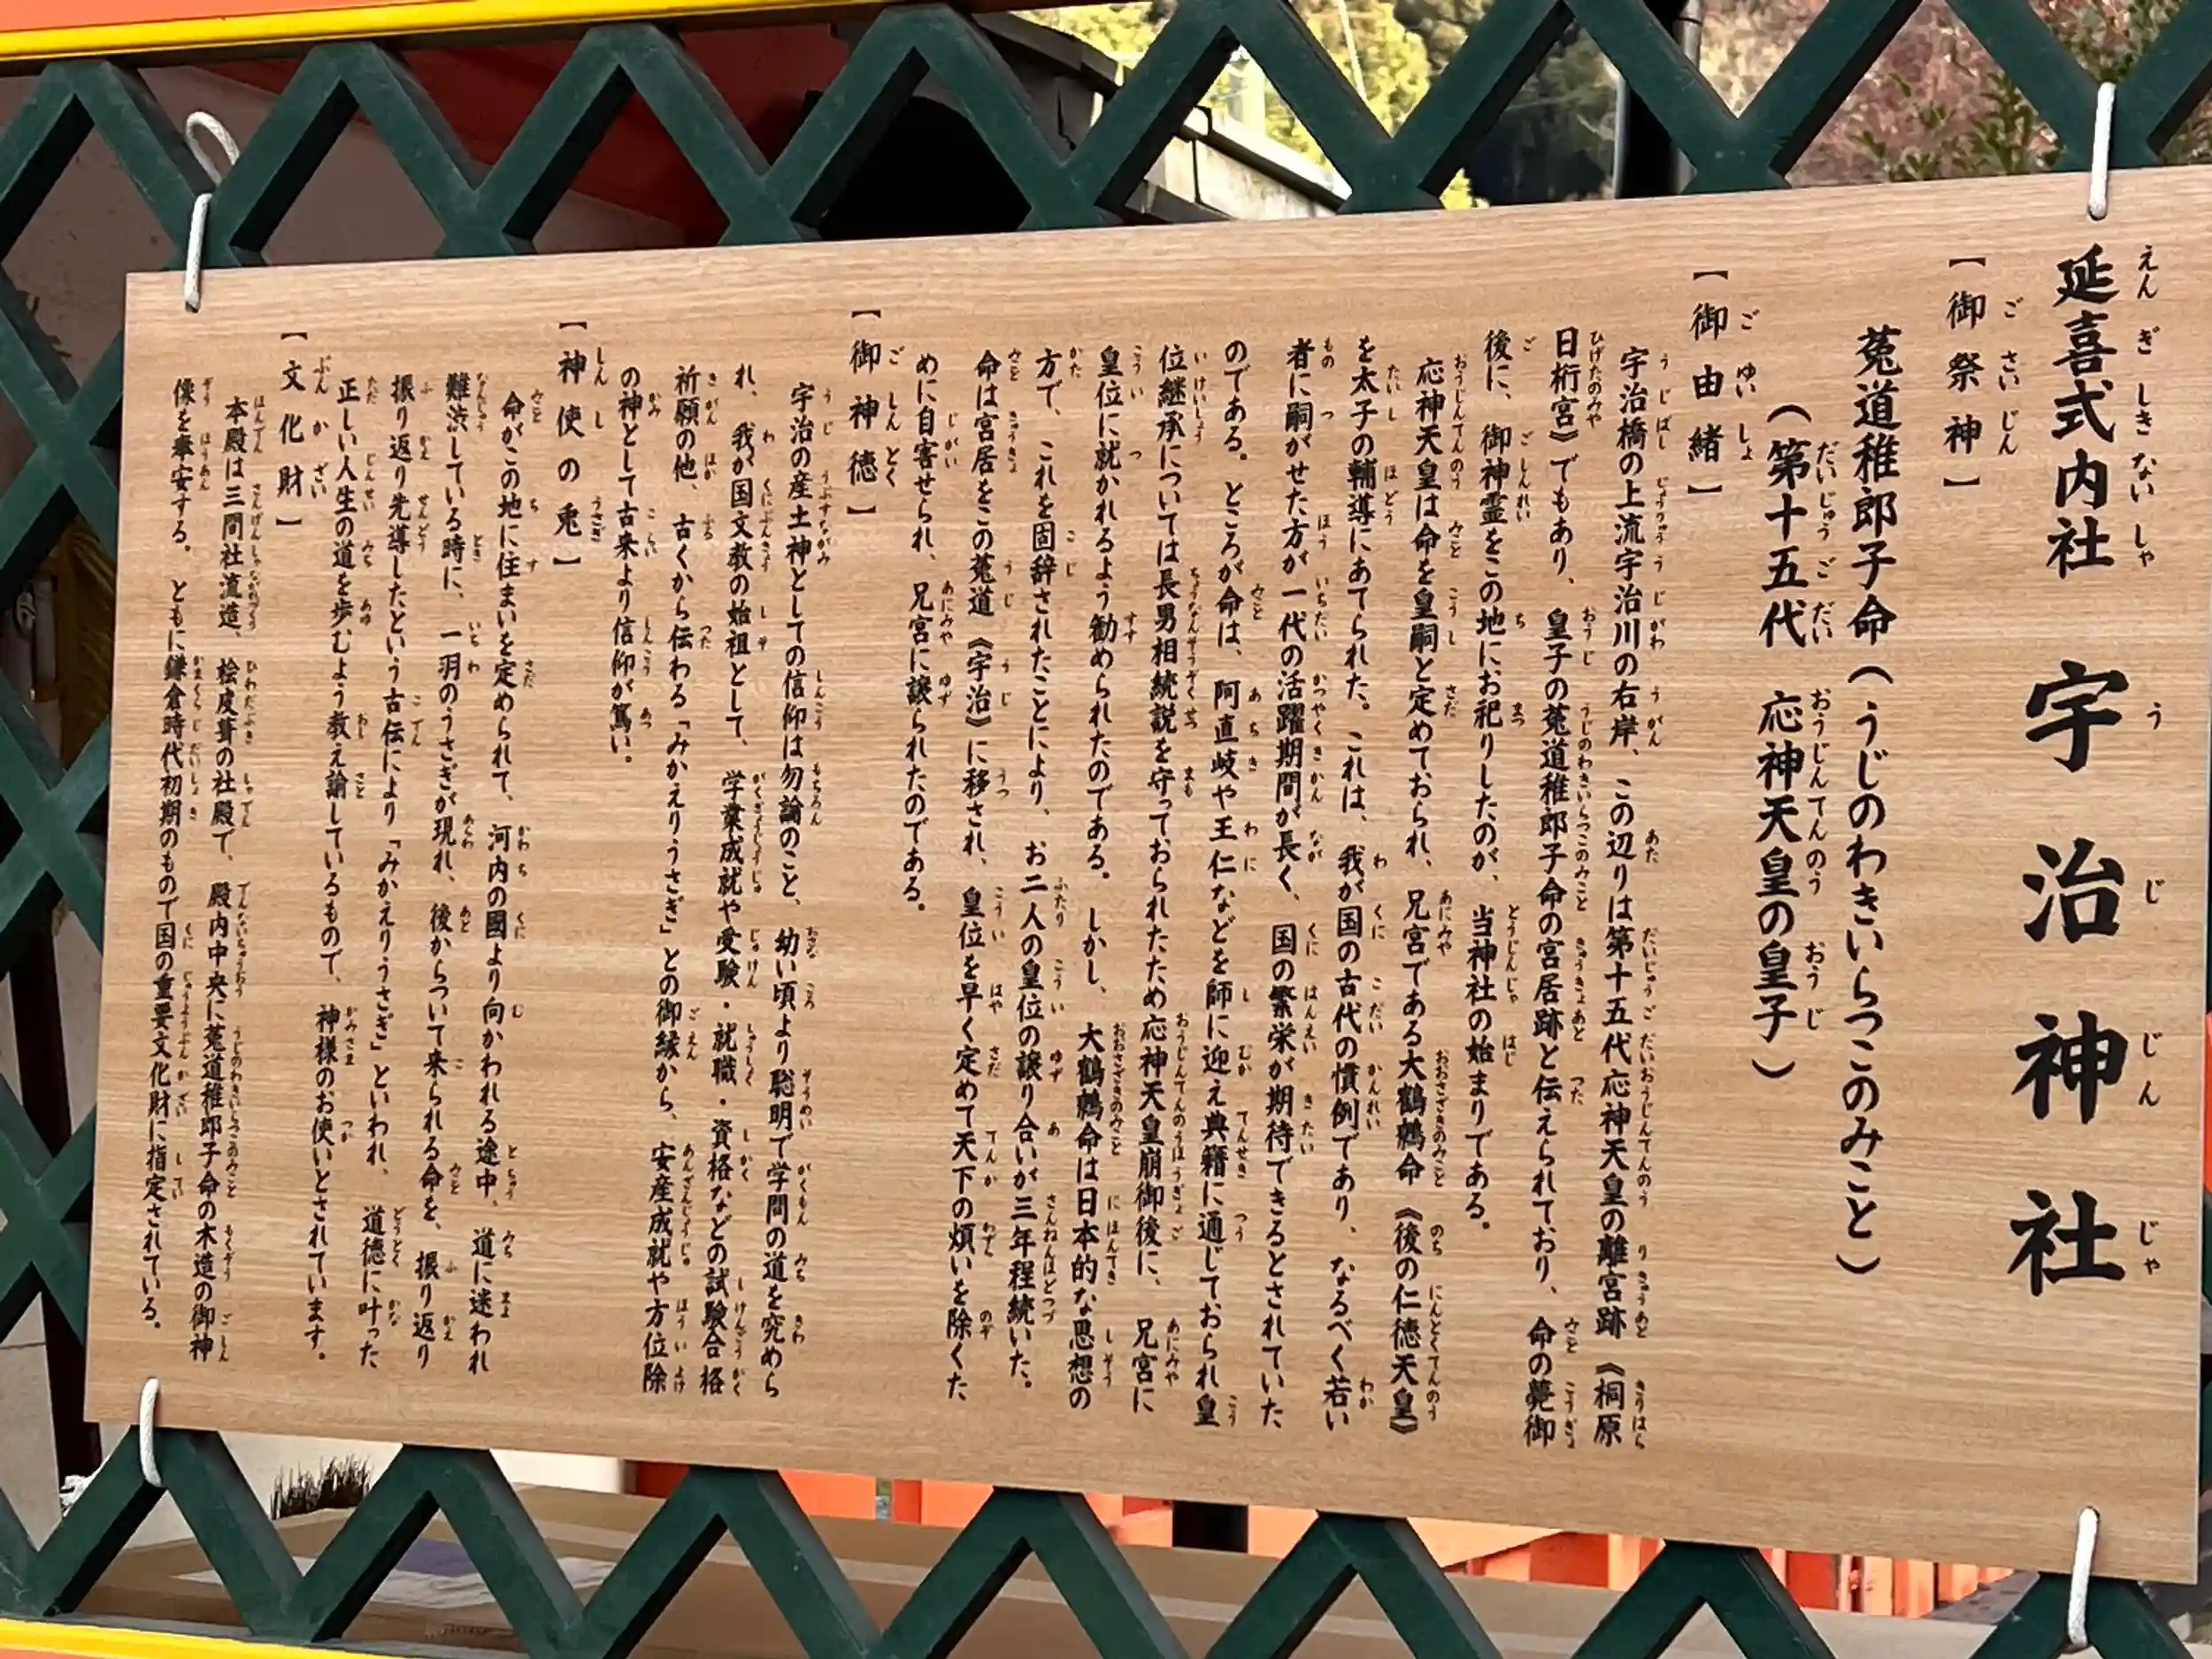 延喜式内社 宇治神社
【御祭神】
菟道稚郎子命(うじのわきいらつこのみこと)
(第十五代 応神天皇の皇子)
【御由緒】
宇治橋の上流宇治川の右岸、この辺りは第十五代応神天皇の離宮跡《桐原
日桁宮》でもあり、皇子の菟道稚郎子命の宮居跡と伝えられており、命の薨御
後に、御神霊をこの地にお祀りしたのが、当神社の始まりである。
応神天皇は命を皇嗣と定めておられ、兄宮である大鷦鷯命《後の仁徳天皇》
を太子の輔導にあてられた。これは、我が国の古代の慣例であり、なるべく若い
者に嗣がせた方が一代の活躍期間が長く、国の繁栄が期待できるとされていた
のである。ところが命は、阿直岐や王仁などを師に迎え典籍に通じておられ皇
位継承については長男相続説を守っておられたため応神天皇崩御後に、兄宮に
皇位に就かれるよう勧められたのである。しかし、大鷦鷯命は日本的な思想の
方で、これを固辞されたことにより、お二人の皇位の譲り合いが三年程続いた。
命は宮居をこの菟道《宇治》に移され、皇位を早く定めて天下の煩いを除くた
めに自害せられ、兄宮に譲られたのである。
【御神徳】
宇治の産土神としての信仰は勿論のこと、幼い頃より聡明で学問の道を究めら
れ、我が国文教の始祖として、学業成就や受験・就職・資格などの試験合格
祈願の他、古くから伝わる「みかえりうさぎ」との御縁から、安産成就や方位除
の神として古来より信仰が篤い。
【神使の兎】
命がこの地に住まいを定められて、河内の國より向かわれる途中、道に迷われ
難渋している時に、一羽のうさぎが現れ、後からついて来られる命を、振り返り
振り返り先導したという古伝により「みかえりうさぎ」といわれ、道徳に叶った
正しい人生の道を歩むよう教え諭しているもので、神様のお使いとされています。
【文化財】
本殿は三間社流造、桧皮葺の社殿で、殿内中央に菟道稚郎子命の木造の御神
像を奉安する。ともに鎌倉時代初期のもので国の重要文化財に指定されている。